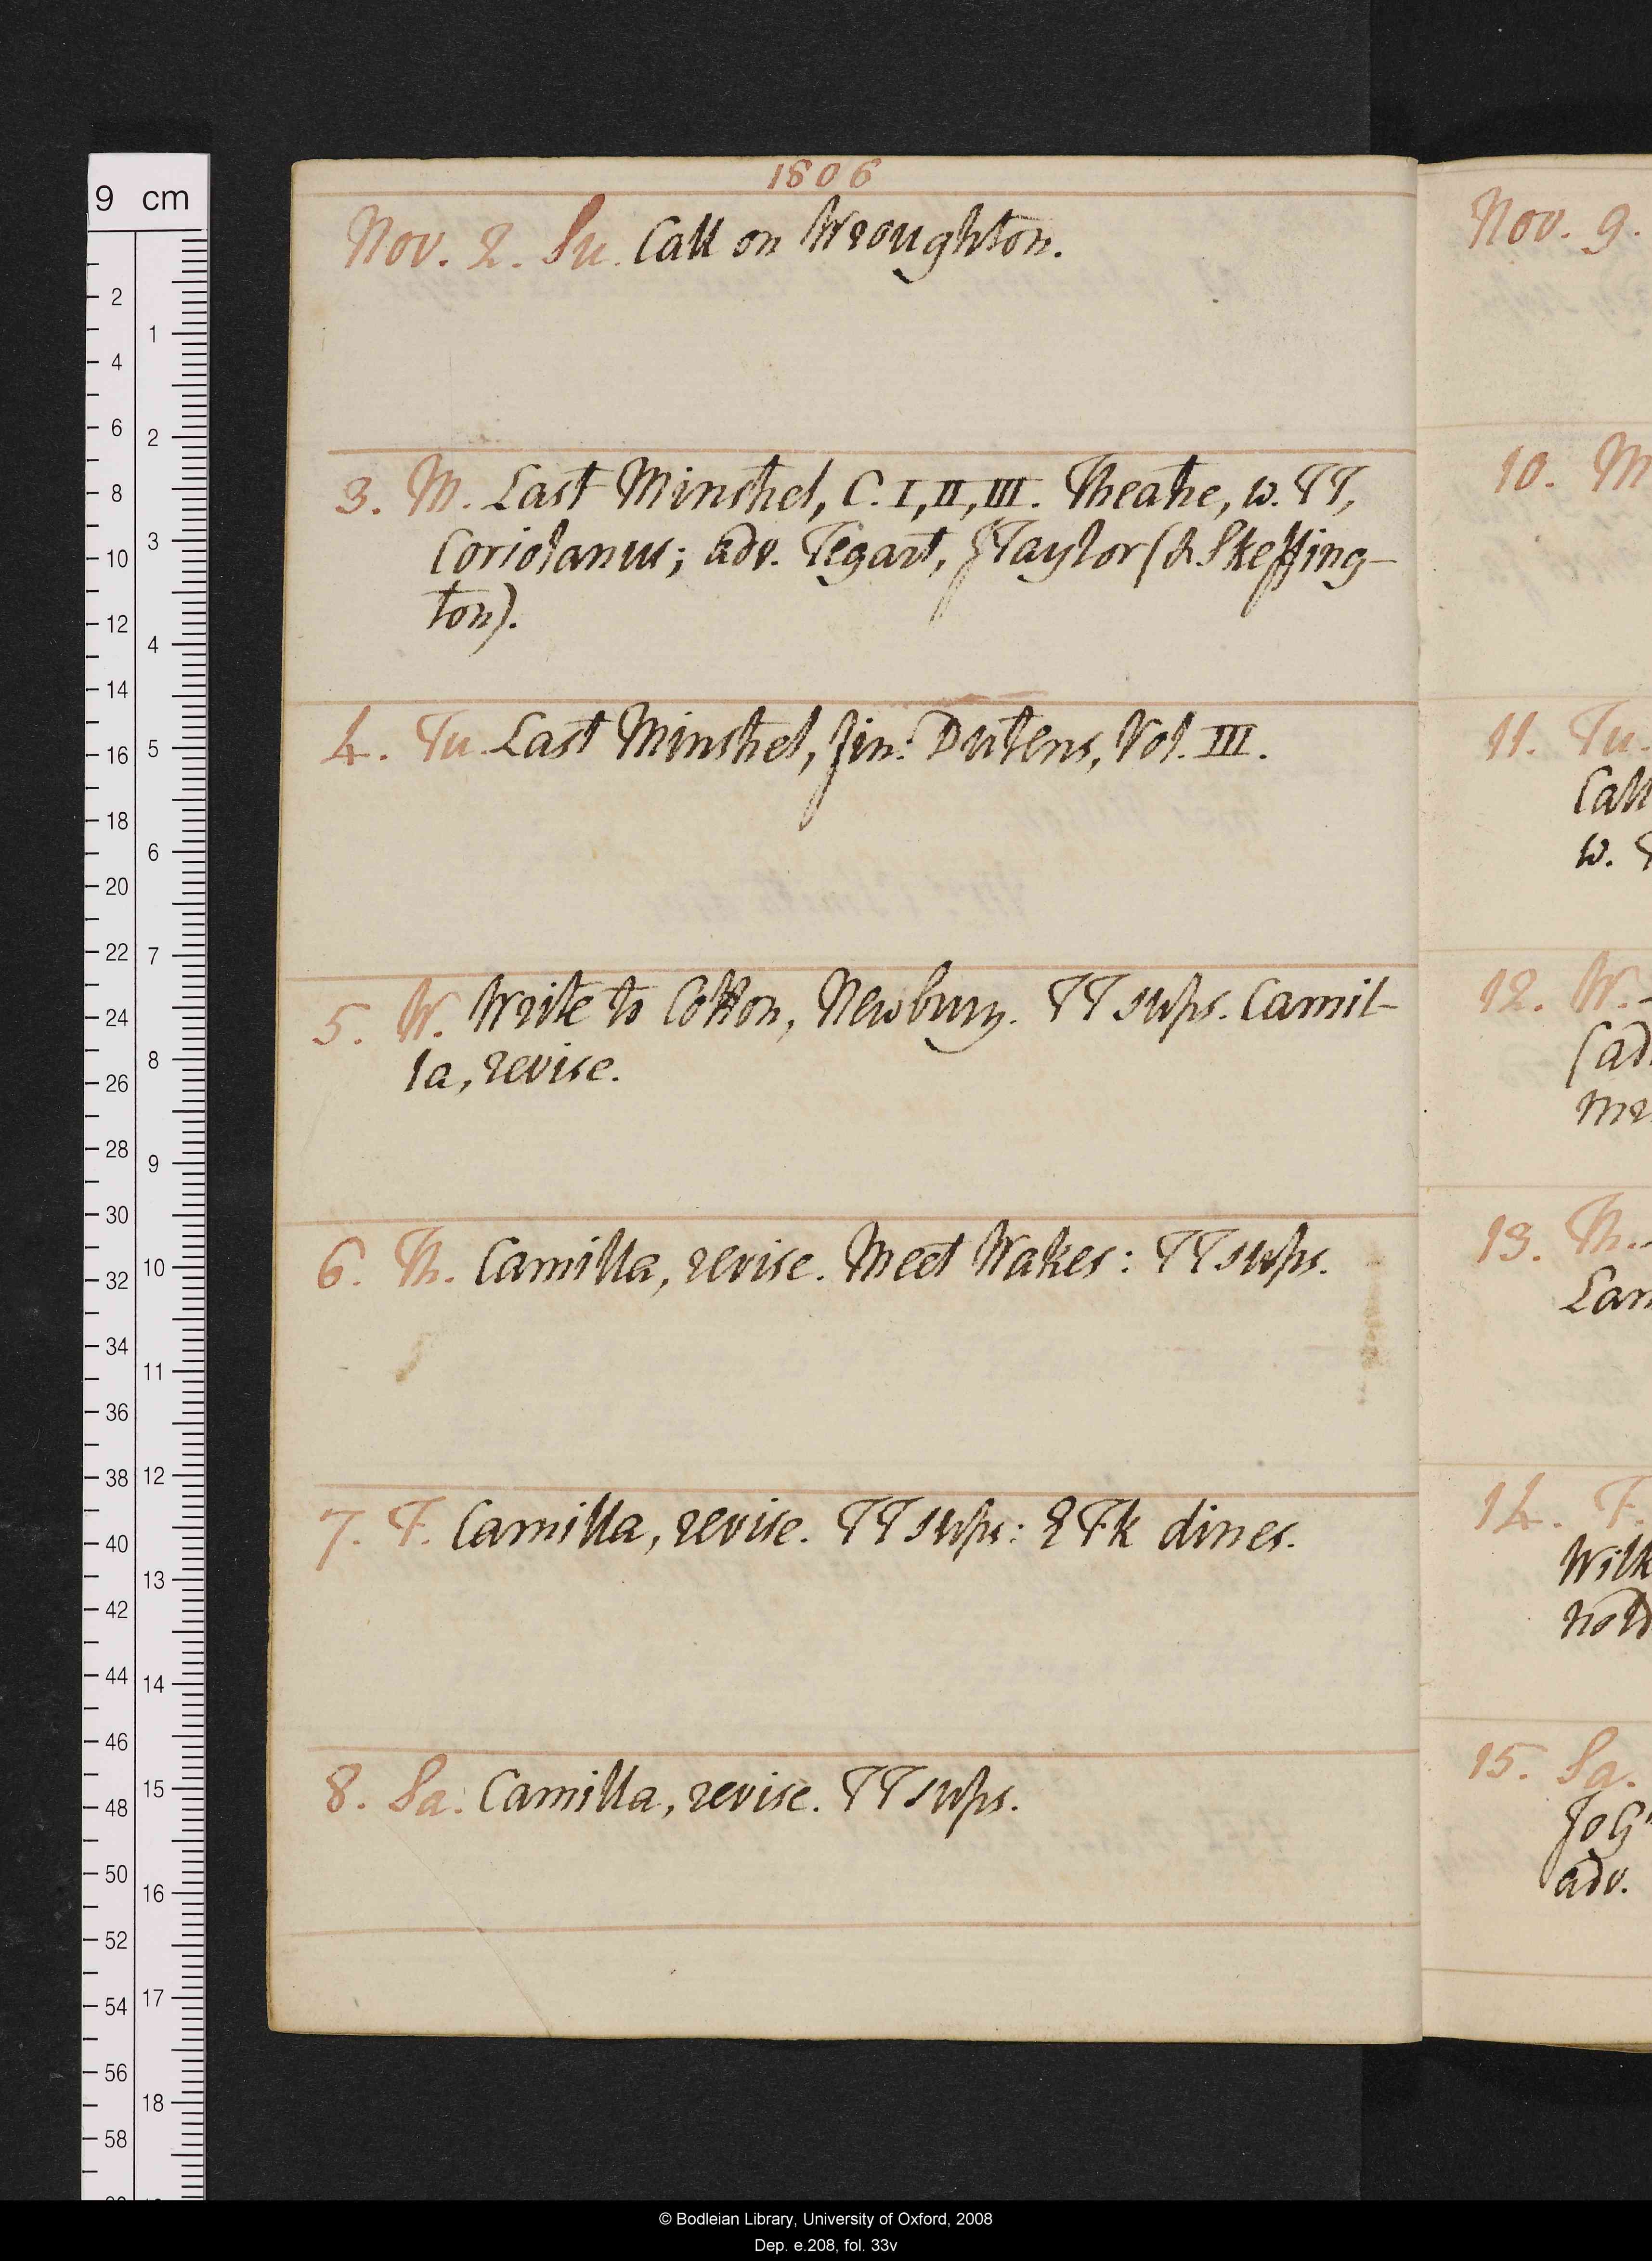 1806
Nov. 2. Su. Call on Wroughton.
3. M. Last Minstrel, C. I, II, III. Theatre, w. TT,
Coriolanus; adv. Tegart, JTaylor (& Skeffing-
ton).
4. Tu. Last Minstrel, fin: Dutens, Vol. III.
5. W. Write to Cotton, Newbury. TT sups. Camil-
la, revise.
6. Th. Camilla, revise. Meet Wakes: TT sups.
7. F. Camilla, revise. TT sups: Fk dines.
8. Sa. Camilla, revise. TT sups.
Nov. 9.
10. M
11. Tu.
Call
w.
12. W.
(ad
mr
13. Th.
Lam
14. F.
Wilk
15. Sa.
JoG
adv.
9 cm
2 4 6 8 10 12 14 16 18 20 22 24 26 28 30 32 34 36 38 40 42 44 46 48 50 52 54 56 58
1 2 3 4 5 6 7 8 9 10 11 12 13 14 15 16 17 18
© Bodleian Library, University of Oxford, 2008
Dep. e.208, fol. 33v